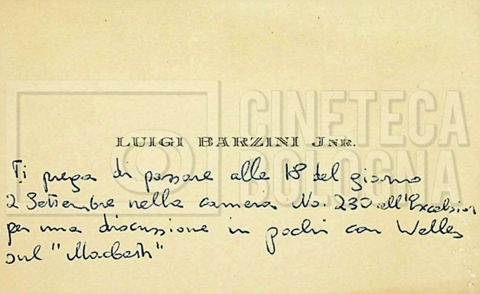 CINETECA
BOLOGNA
LUIGI BARZINI JNR.
Ti prega di passare alle 18 del giorno
2 Settembre nella camera No. 230 all'Excelsior
per una discussione in pochi con Welles
sul "Macbeth"